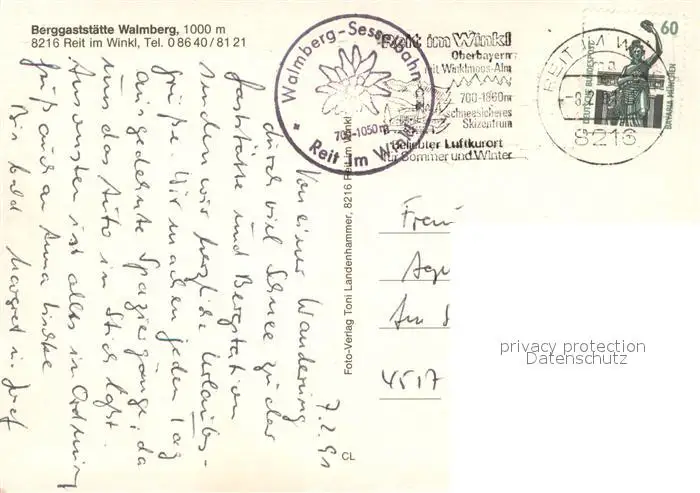 Berggaststätte Walmberg, 1000 m
8216 Reit im Winkl, Tel. 0 86 40 / 81 21
Walmberg-Sesselbahn
700-1050m
Reit im Winkl
Reit im Winkl
Oberbayern
mit Winklmoos-Alm
700-1860m
schneesicheres
Skizentrum
Beliebter Luftkurort
für Sommer und Winter
REIT IM WINKL
8216
60
DEUTSCHE BUNDESPOST
BAVARIA MÜNCHEN
7.2.91
Von einer Wanderung
durch viel Schnee zu der
Gaststätte und Bergstation
senden wir herzliche Urlaubs-
grüße. Wir machen jeden Tag
ausgedehnte Spaziergänge, da
uns das Auto in Stich läßt.
Ansonsten ist alles in Ordnung
Grüße auch an Anna
Bis bald Margret u. Josef
Foto-Verlag Toni Landenhammer, 8216 Reit im Winkl
CL
Am
4517
privacy protection
Datenschutz